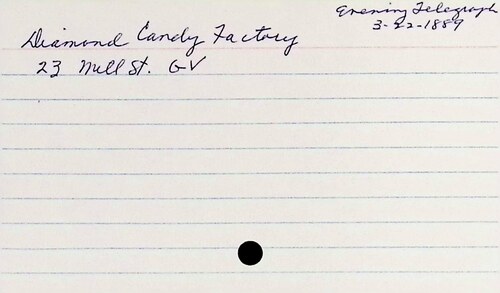 Evening Telegraph
3-22-1889
Diamond Candy Factory
23 Mill St. GV